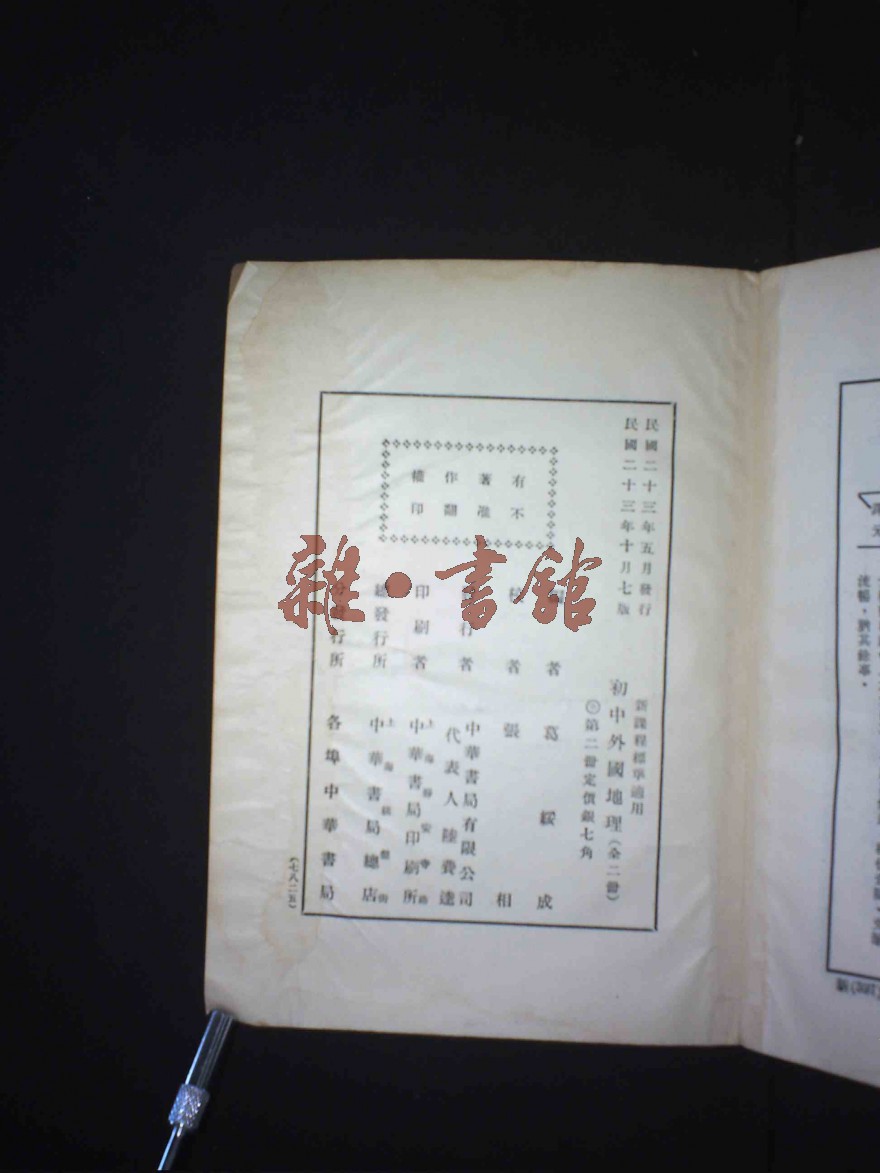 民國二十三年五月發行
民國二十三年十月七版
新課程標準適用
初中外國地理(全二冊)
第二冊定價銀七角
有著作權
不准翻印
者 葛綏成
者 張相
行者 中華書局有限公司
代表人 陸費逵
印刷者 上海靜安寺路
中華書局印刷所
總發行所 上海棋盤街
中華書局總店
分發行所 各埠中華書局
(七八二五)
雜·書館
流暢,猶其餘事。